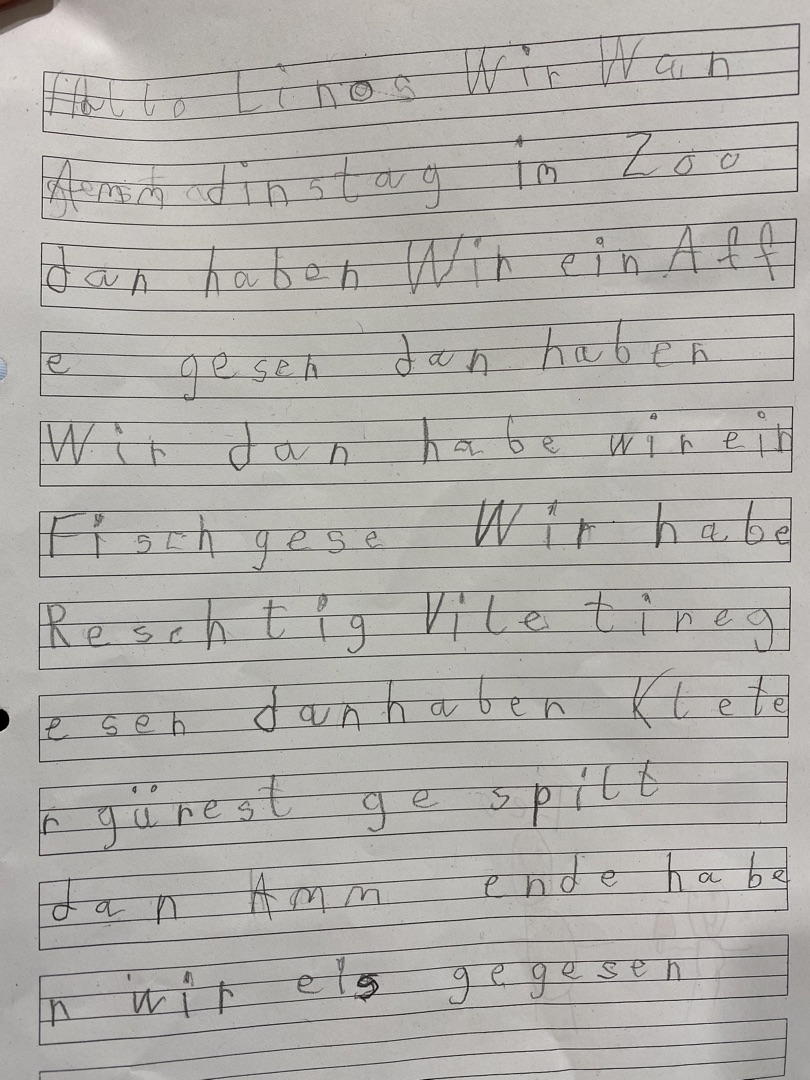 Hallo Linos Wir Wan
Amm dinstag in Zoo
dan haben Wir ein Aff
e gesen dan haben
Wir dan habe wir ein
Fisch gese Wir habe
Reschtig Vile tireg
e sen dan haben Klete
r gürest ge spilt
dan Amm ende habe
n wir eis gegesen